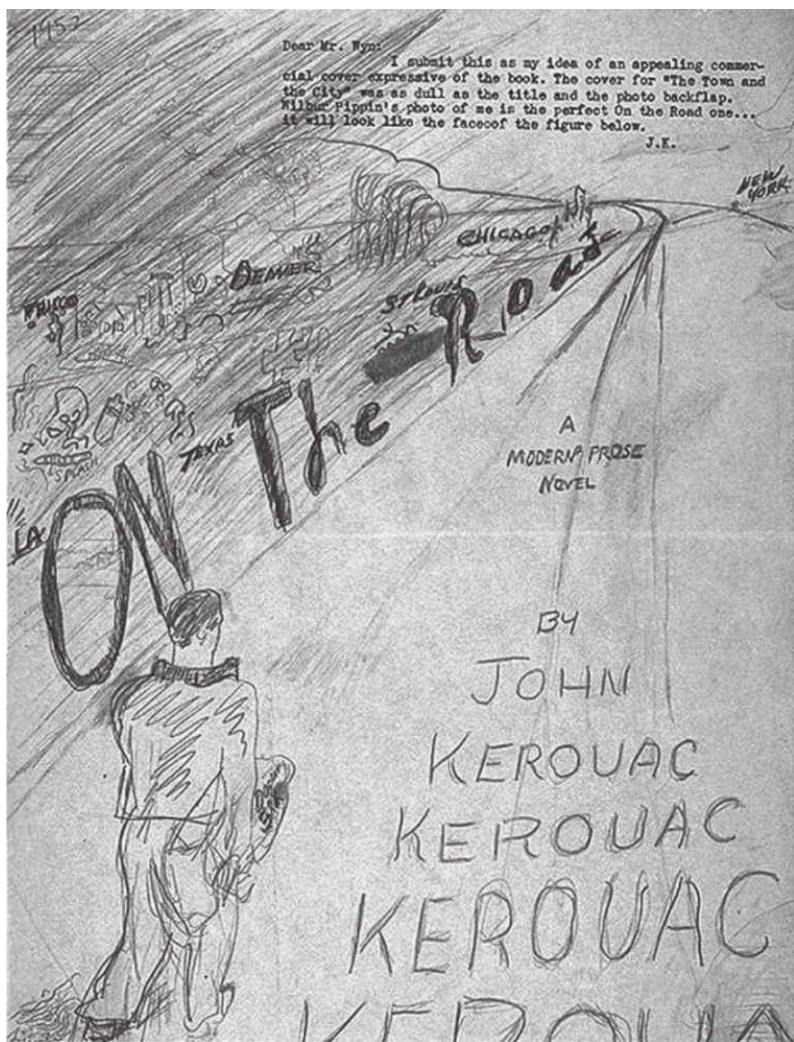 1952
Dear Mr. Wyn:
I submit this as my idea of an appealing commer-
cial cover expressive of the book. The cover for "The Town and
the City" was as dull as the title and the photo backflap.
Wilbur Pippin's photo of me is the perfect On the Road one...
it will look like the faceof the figure below.
J.K.
NEW
YORK
CHICAGO
DENVER
ST LOUIS
FRISCO
TEXAS
LA
SPLASH
ON The Road
A
MODERN PROSE
NOVEL
BY
JOHN
KEROUAC
KEROUAC
KEROUAC
KEROUA